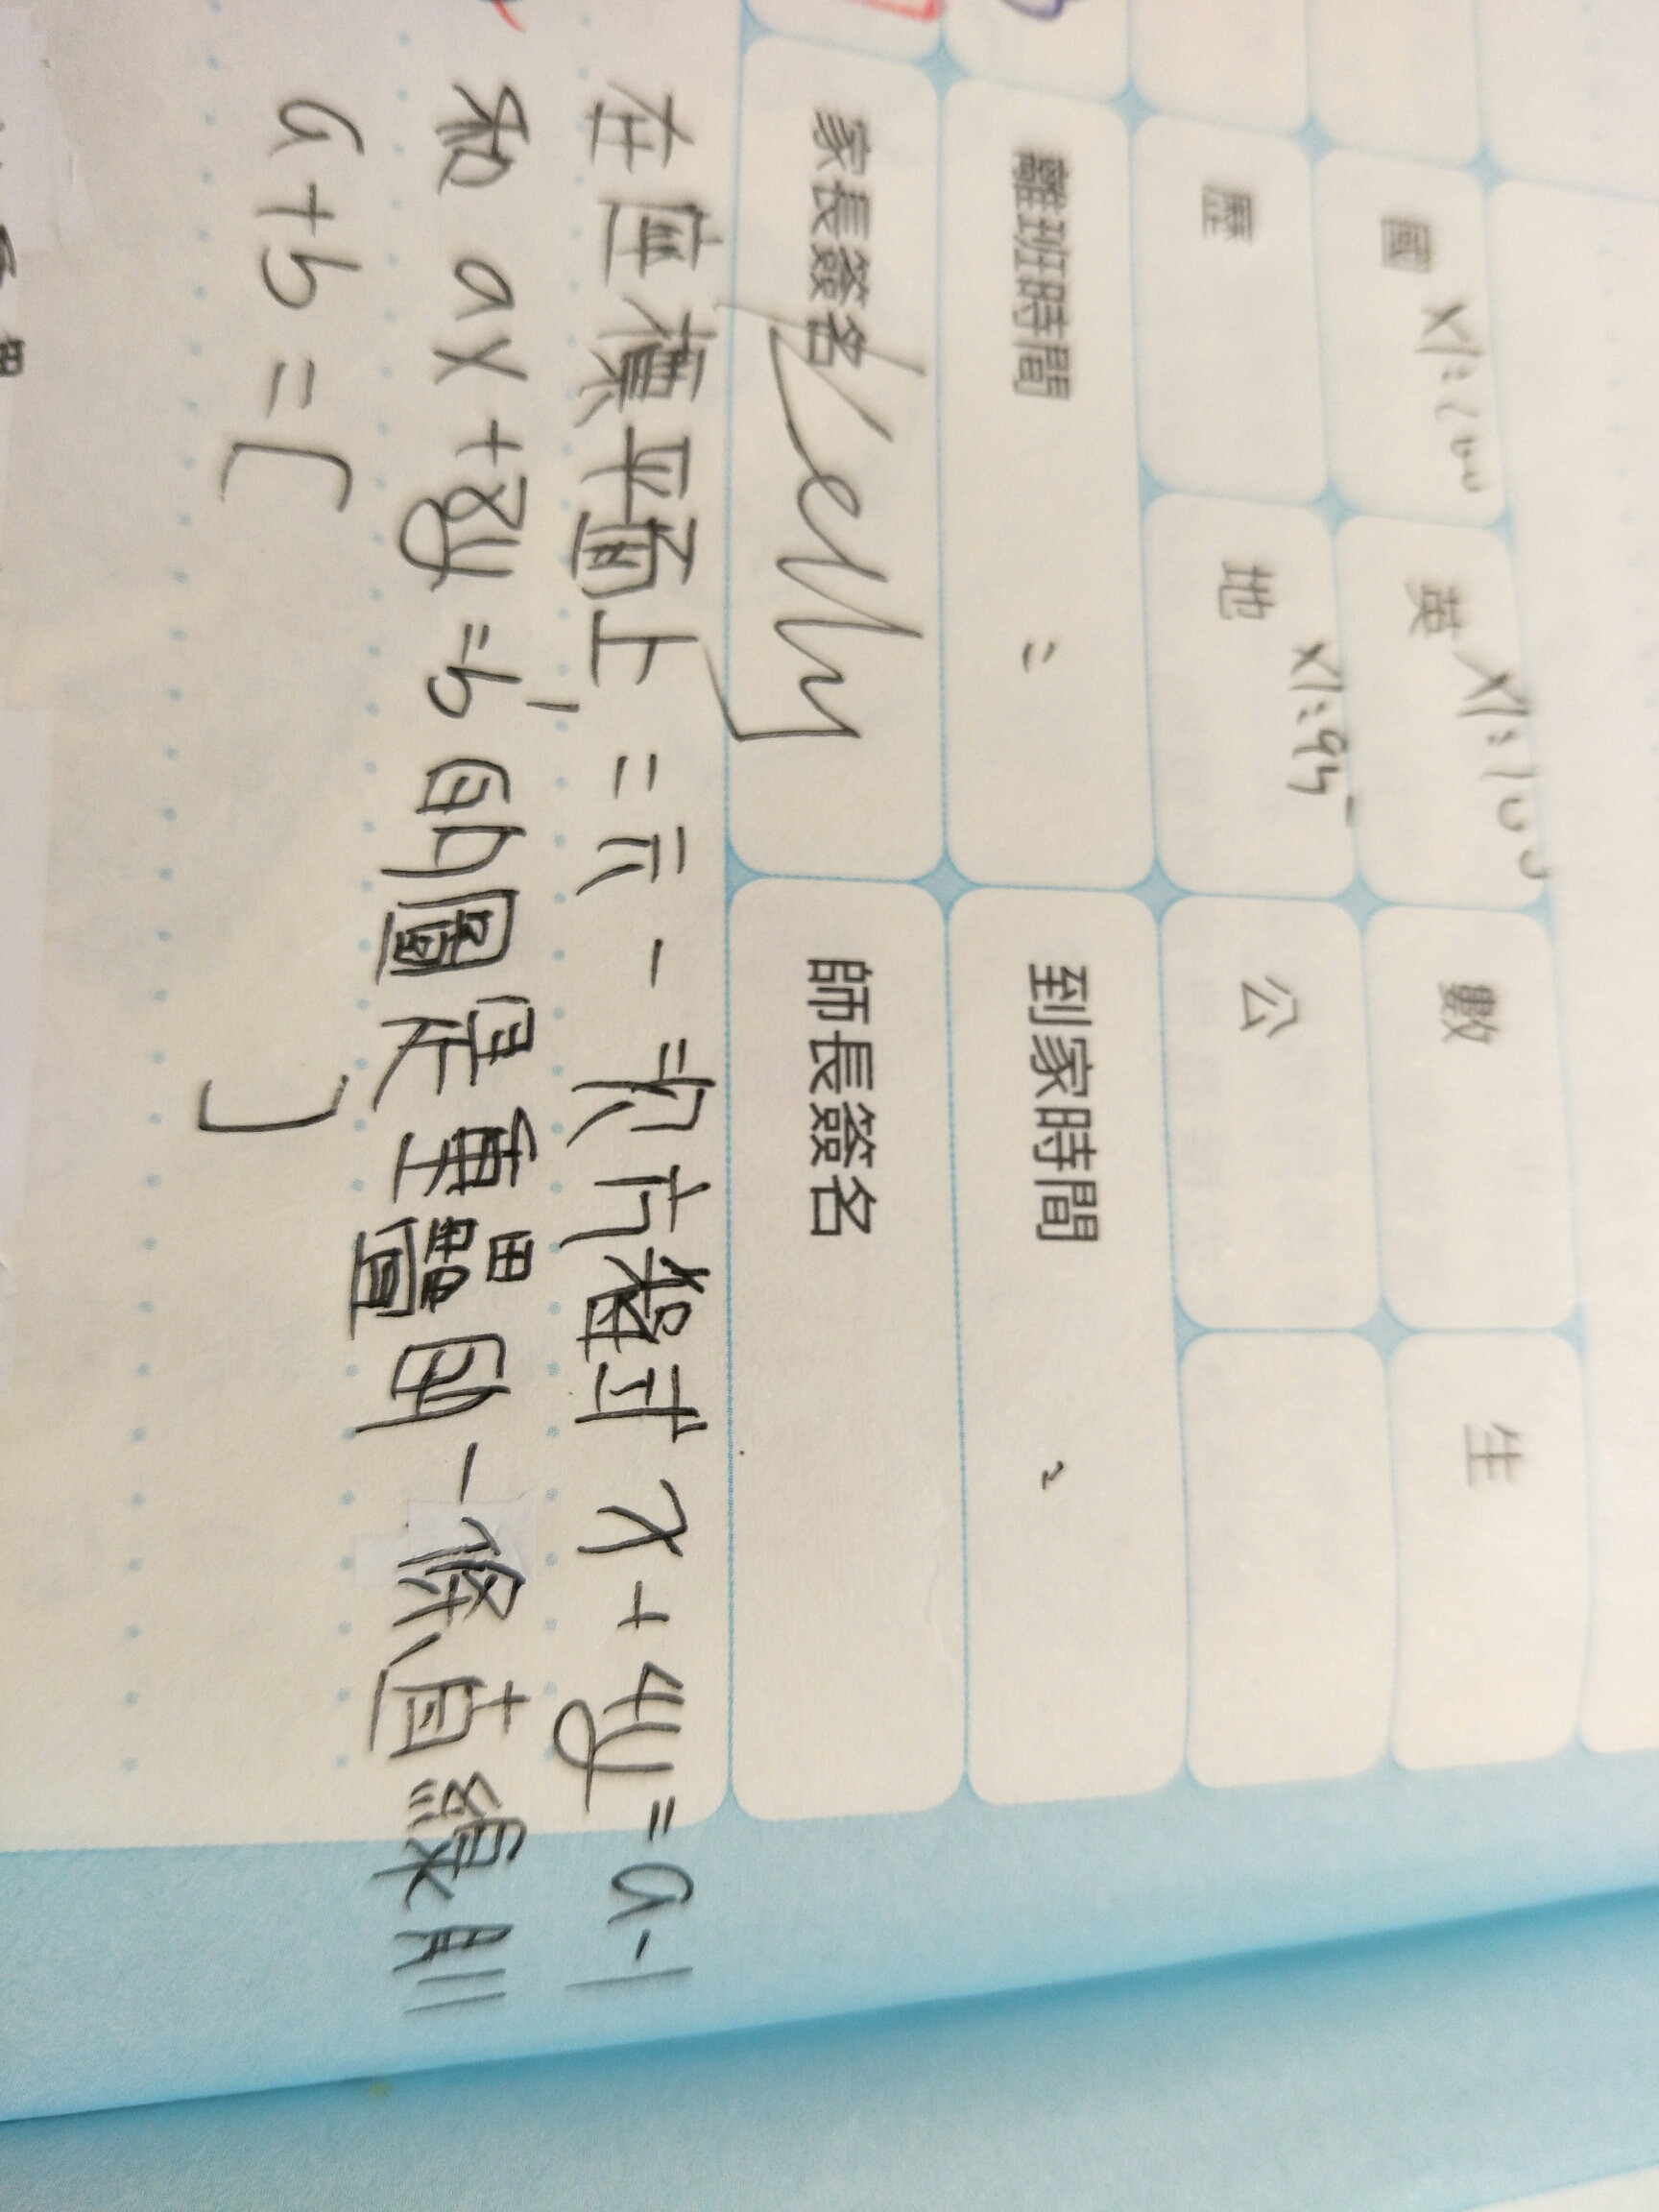 國 x1:200
英 x1:100
數
生
歷
地 x1:95
公
離班時間 :
到家時間 :
家長簽名 Kelly
師長簽名
在座標平面上,二元一次方程式 x+4y=a-1
和 ax+8y=b的圖是重疊的一條直線則
a+b=[ ]